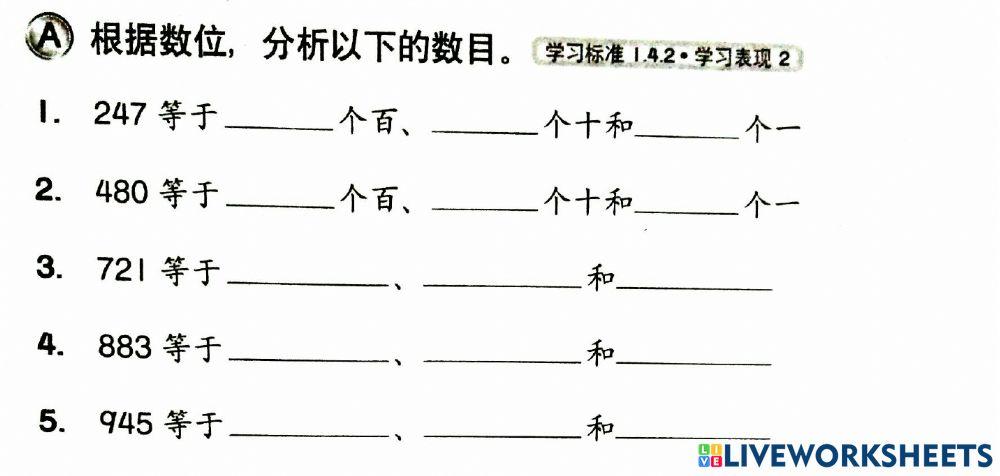 A 根据数位，分析以下的数目。 学习标准 1.4.2·学习表现 2
1. 247 等于______个百、______个十和______个一
2. 480 等于______个百、______个十和______个一
3. 721 等于_________、_________和_________
4. 883 等于_________、_________和_________
5. 945 等于_________、_________和_________
LIVE LIVEWORKSHEETS